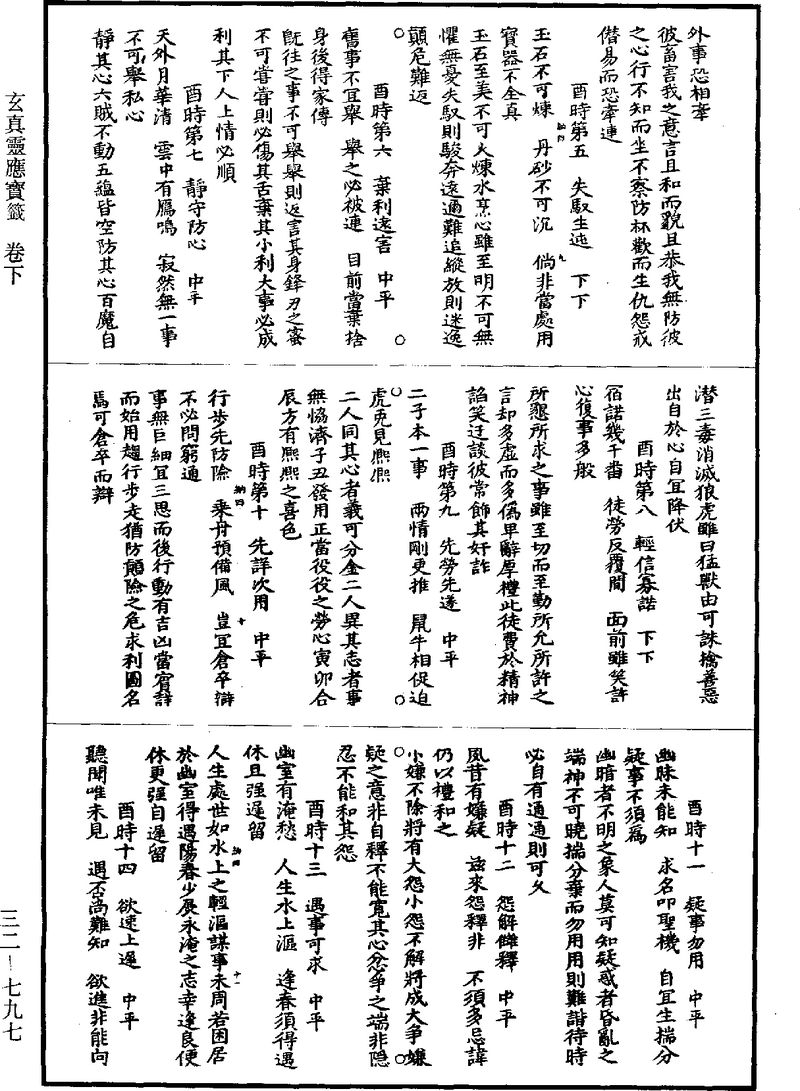 外事恐相牽
彼畜害我之意言且和而貌且恭我無防彼
之心行不知而坐不察防杯歡而生仇怨戒
僭易而恐牽連
酉時第五　失馭生迍　下下
玉石不可煉　丹砂不可沉　倘非當處用
寳器不全真
玉石至美不可火煉水烹心雖至明不可無
懼無憂失馭則駿奔遠邇難追縱放則迷逸
顛危難返
酉時第六　棄利遠害　中平
舊事不宜舉　舉之必被連　目前當棄捨
身後得家傳
既往之事不可舉舉則返害其身鋒刃之蜜
不可嘗嘗則必傷其舌棄其小利大事必成
利其下人上情必順
酉時第七　靜守防心　中平
天外月華清　雲中有鴈鳴　寂然無一事
不可舉私心
靜其心六賊不動五蘊皆空防其心百魔自
潜三毒消滅狼虎雖曰猛獸由可誅擒善惡
出自於心自宜降伏
酉時第八　輕信寡諾　下下
宿諾幾千畨　徒勞反覆間　面前雖笑許
心復事多般
所懇所求之事雖至切而至勤所允所許之
言却多虛而多僞卑辭厚禮此徒費於精神
諂笑迂談彼常飾其奸詐
酉時第九　先勞先遂　中平
二子本一事　兩情剛更推　鼠牛相促迫
虎兎見熈熈
二人同其心者義可分金二人異其志者事
無恊濟子丑發用正當役役之勞心寅卯合
辰方有熈熈之喜色
酉時第十　先詳次用　中平
行步先防險　乘舟預備風　豈宜倉卒辯
不必問窮通
事無巨細宜三思而後行動有吉凶當審詳
而始用趨行步走猶防顛險之危求利圖名
焉可倉卒而辯
酉時十一　疑事勿用　中平
幽昧未能知　求名叩聖機　自宜生揣分
疑事不須爲
幽暗者不明之象人莫可知疑惑者昏亂之
端神不可曉揣分棄而勿用用則難諧待時
必自有通通則可久
酉時十二　怨解讎釋　中平
夙昔有嫌疑　玆來怨釋非　不須多忌諱
仍以禮和之
小嫌不除將有大怨小怨不解將成大爭嫌
疑之意非自釋不能寬其心忿爭之端非隱
忍不能和其怨
酉時十三　遇事可求　中平
幽室有淹愁　人生水上漚　逢春須得遇
休且强遲留
人生處世如水上之輕漚謀事未周若困居
於幽室得遇陽春少展永淹之志幸逢良便
休更强自遲留
酉時十四　欲速上遲　中平
聽聞唯未見　遇否尚難知　欲進非能向
玄真靈應寶籤　卷下
三二—七九七